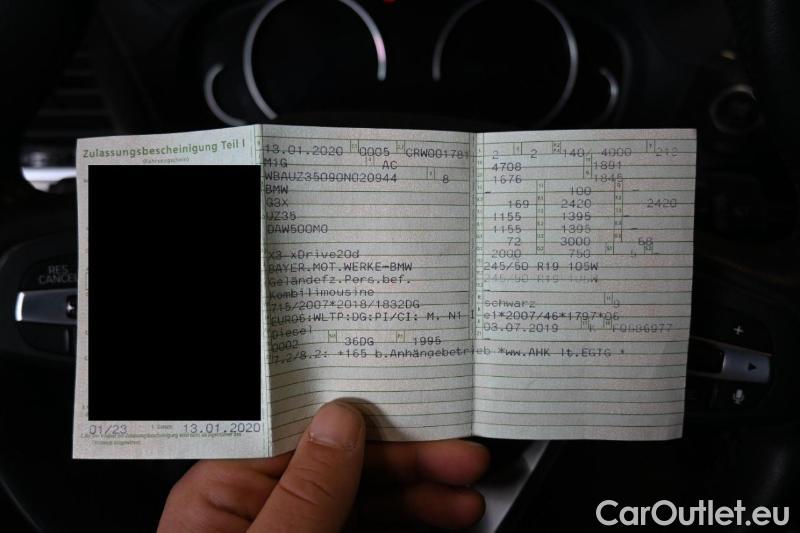 Zulassungsbescheinigung Teil I
(Fahrzeugschein)
01/23 13.01.2020
13.01.2020 0005 CRW001781
M1G AC
WBAUZ35090N020944 8
BMW
G3X
UZ35
DAW500M0
X3 xDrive20d
BAYER.MOT.WERKE-BMW
Geländefz.Pers.bef.
Kombilimousine
715/2007*2018/1832DG
EURO6:WLTP:DG:PI/CI: M, N1 I
Diesel
0002 36DG 1995
7.2/8.2: *165 b.Anhängebetrieb *ww.AHK lt.EGTG *
2 2 140/ 4000 213
4708 1891
1676 1845
- 100 -
169 2420 2420
1155 1395 -
1155 1395 -
72 3000 68
2000 750 5 -
245/50 R19 105W
245/50 R19 105W
schwarz 9
e1*2007/46*1797*06
03.07.2019 K
RES
CANCEL
CarOutlet.eu